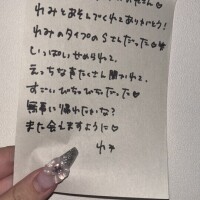 れみとあそんでくれてありがとう!
れみのタイプのSさんだった
いっぱいせめられて、
えっちな声たくさん聞かれて、
すごいびちゃびちゃだった♡
無事に帰れたかな?
また会えますように♡